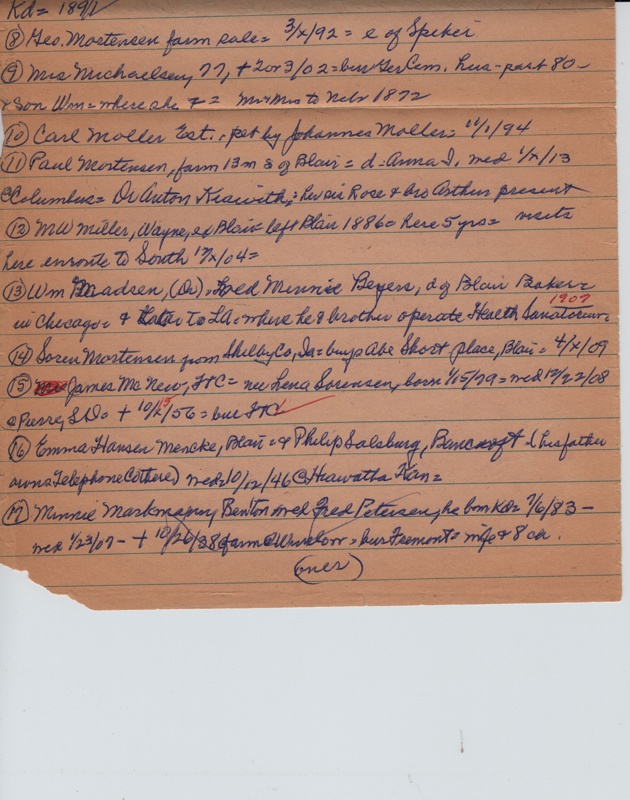 Kd = 1891
(8) Geo. Mortensen farm sale = 3/x/92 = e of Spiker
(9) Mrs Michaelsen, 77, + 2 or 3/02 = bur Ger Cem. hus - past 80 -
+ Son Wm = where she = Mr & Mrs to Nebr 1872
(10) Carl Moller Est., pet by Johannes Moller = 11/1/94
(11) Paul Mortensen, farm 13 m s of Blair = d = Anna I, wed 1/x/13
@ Columbus = Dr Anton = her sis Rose & bro Arthur present
(12) MW Miller, Wayne, ex Blair left Blair 1886 = here 5 yrs = visits
here enroute to South 12/x/04 =
(13) Wm Madsen, (Dr), wed Minnie Beyers, d of Blair Baker =
in Chicago = & to LA = where he & brother operate Health Sanatorium = 1907
(14) Soren Mortensen from Shelby Co, Ia = buys Abe Short place, Blair = 4/x/09
(15) James McNew, FTC = nee Lena Sorensen, born 1/15/79 = wed 12/22/08
@ Pierre, S.D. = + 10/15/56 = bur FTC
(16) Emma Hansen Mencke, Blair = & Philip Salsburg, Bancroft (his father
owns Telephone Co there) wed = 10/12/46 @ Hiawatha Kan =
(17) Minnie Markmayer, Benton wed Fred Petersen, he born Kd = 7/6/83 -
wed 1/23/07 - + 10/26/38 @ farm @ Winslow = bur Fremont = wife & 8 ch.
(over)